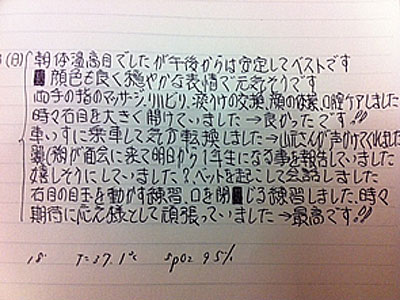 (日) 朝体温高目でしたが午後からは安定してベストです
顔色も良く穏やかな表情で元気そうです
両手の指のマッサージ、リハビリ、涙リけの交換、顔の体操、口腔ケアしました
時々右目を大きく開けていました→良かったです!!
車いすに乗車して気分転換しました→山元さんが声かけてくれました
翼(孫)が面会に来て明日から1年生になる事を報告していました
嬉しそうにしていました？ベットを起こして会話しました
右目の目玉を動かす練習、口を閉じる練習しました、時々
期待に応え様として頑張っていました→最高です!!
18° T=37.1℃ SpO2 95%